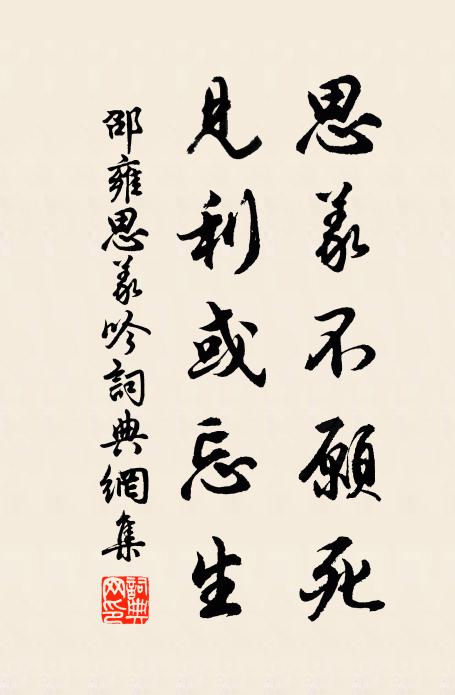 思義不願死
見利或忘生
邵雍思義吟詞典網集
詞典网印